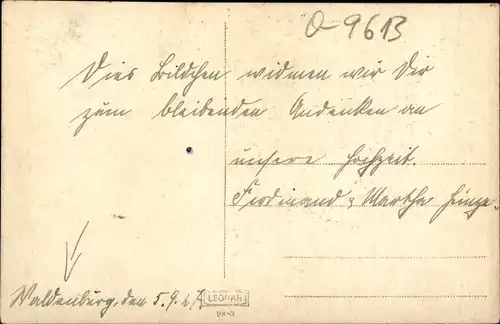 O-9613
Dies Bildchen widmen wir Dir
zum bleibenden Andenken an
unsere Hochzeit.
Ferdinand & Martha
Waldenburg, den 5.9.27
LEONAR